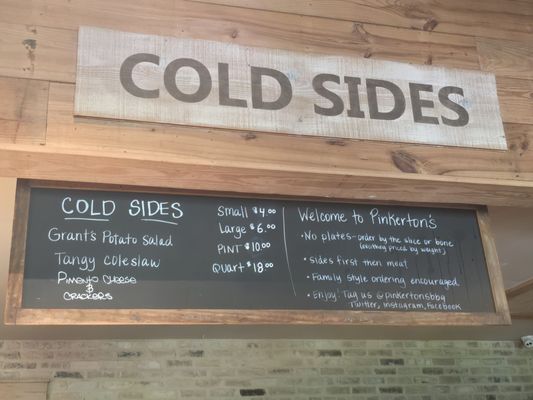 COLD SIDES
COLD SIDES
Grant's Potato Salad
Tangy Coleslaw
Pimento Cheese
&
Crackers
Small $4.00
Large $6.00
PINT $10.00
Quart $18.00
Welcome to Pinkerton's
• No plates- order by the slice or bone
(worthey priced by weight)
• Sides first then meat
• Family style ordering encouraged
• Enjoy! Tag us @pinkertonsbbq
Twitter, instagram, Facebook